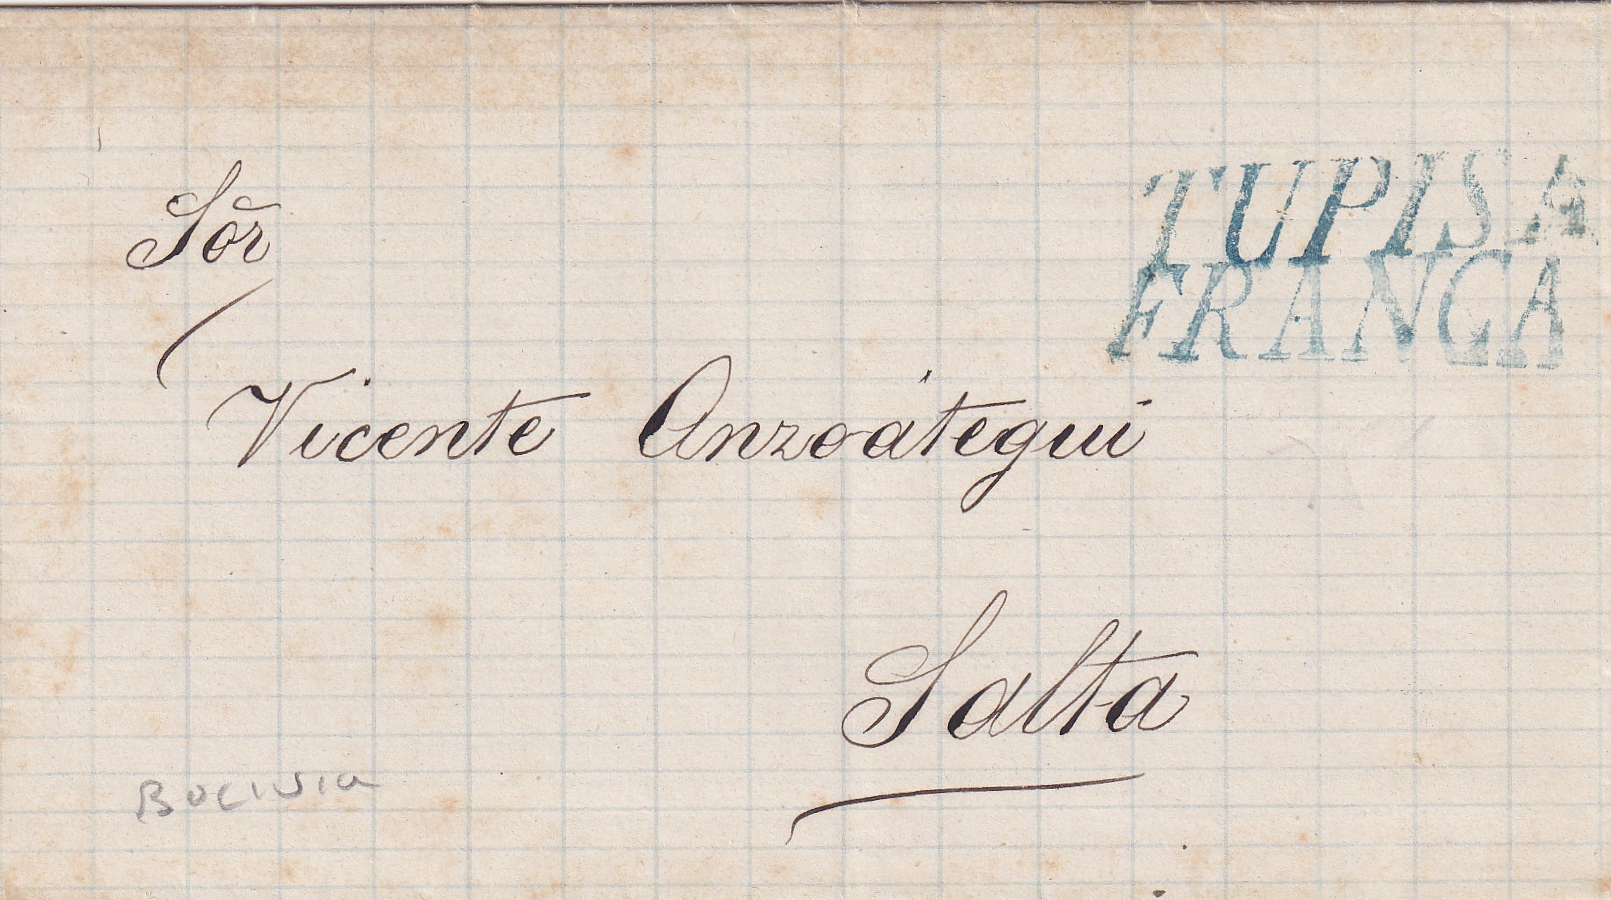 TUPISA
FRANCA
Sōr
Vicente Anzoátegui
Salta
Bolivia